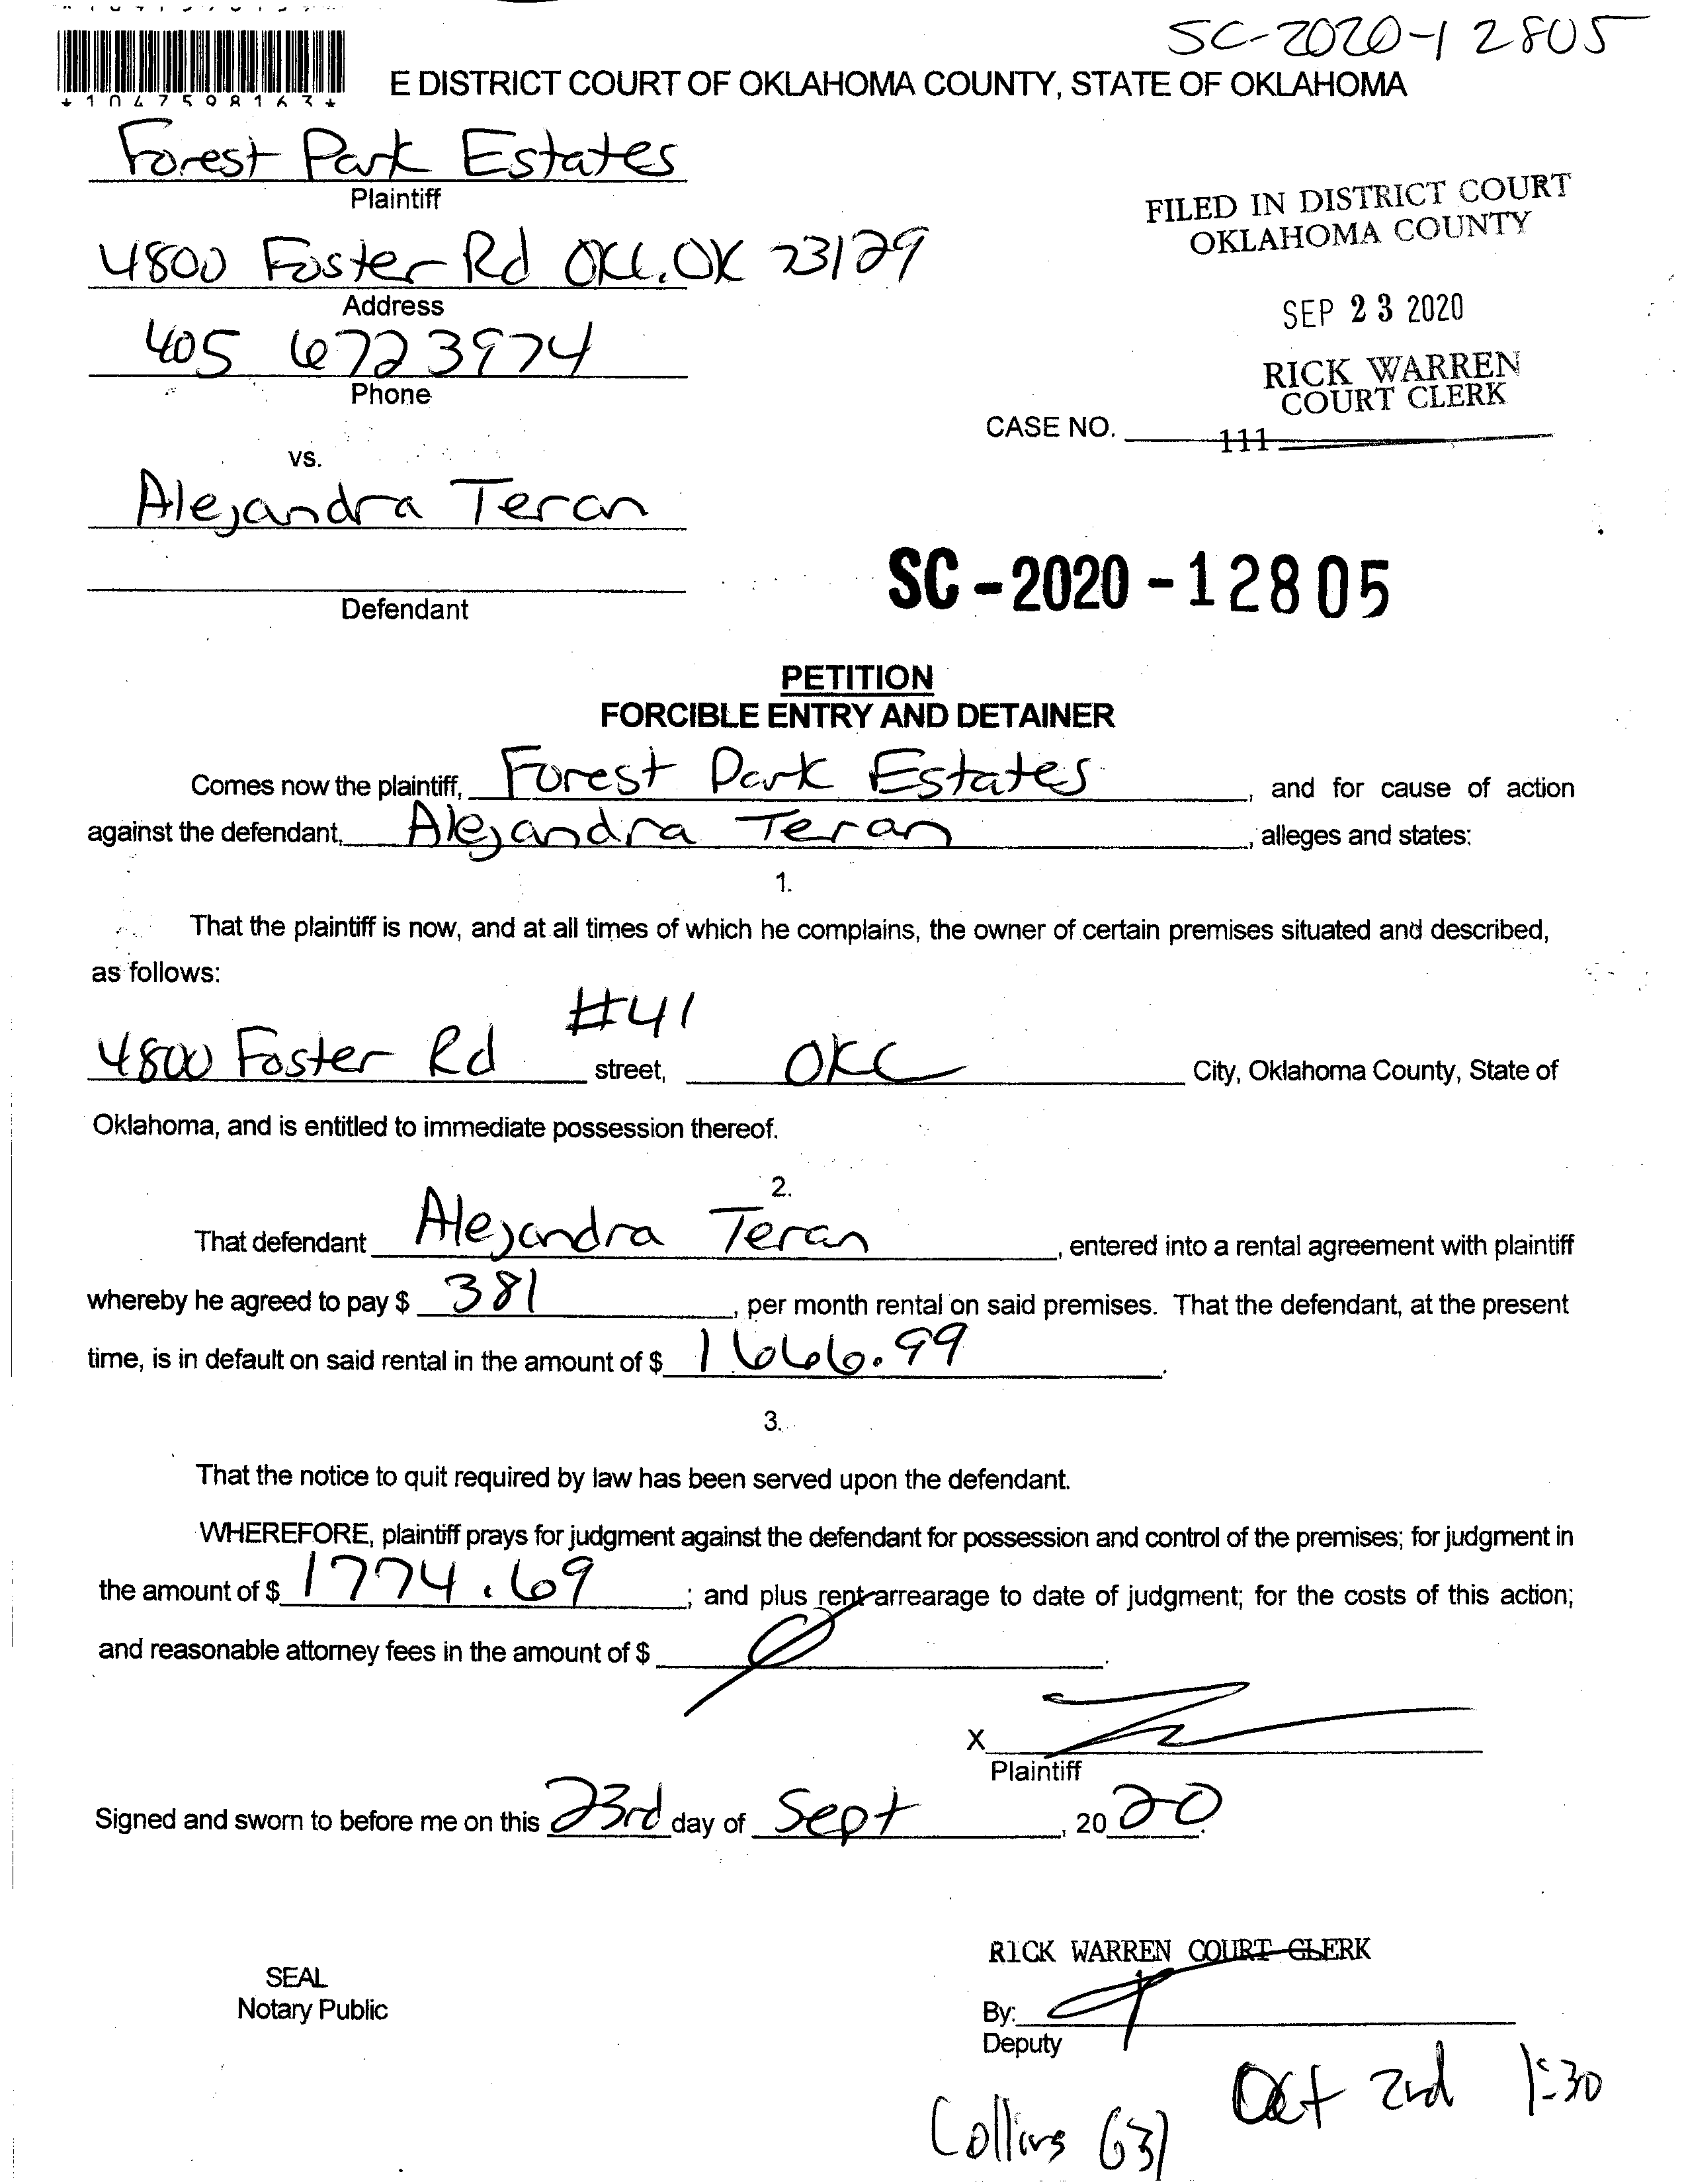 SC-2020-12805
*1047598163*
E DISTRICT COURT OF OKLAHOMA COUNTY, STATE OF OKLAHOMA
Forest Park Estates
Plaintiff
FILED IN DISTRICT COURT
OKLAHOMA COUNTY
4800 Foster Rd OKC, OK 73129
Address
SEP 23 2020
405 672 3974
Phone
RICK WARREN
COURT CLERK
CASE NO.
111
vs.
Alejandra Teran
SC-2020-12805
Defendant
PETITION
FORCIBLE ENTRY AND DETAINER
Comes now the plaintiff, Forest Park Estates, and for cause of action
against the defendant, Alejandra Teran, alleges and states:
1.
That the plaintiff is now, and at all times of which he complains, the owner of certain premises situated and described,
as follows:
#41
4800 Foster Rd street, OKC City, Oklahoma County, State of
Oklahoma, and is entitled to immediate possession thereof.
2.
That defendant Alejandra Teran, entered into a rental agreement with plaintiff
whereby he agreed to pay $ 381, per month rental on said premises. That the defendant, at the present
time, is in default on said rental in the amount of $ 1666.99.
3.
That the notice to quit required by law has been served upon the defendant.
WHEREFORE, plaintiff prays for judgment against the defendant for possession and control of the premises; for judgment in
the amount of $ 1774.69; and plus rent arrearage to date of judgment; for the costs of this action;
and reasonable attorney fees in the amount of $ 0.
X
Plaintiff
Signed and sworn to before me on this 23rd day of Sept, 2020.
RICK WARREN COURT CLERK
SEAL
Notary Public
By:
Deputy
Oct 2nd 1:30
Collins 631